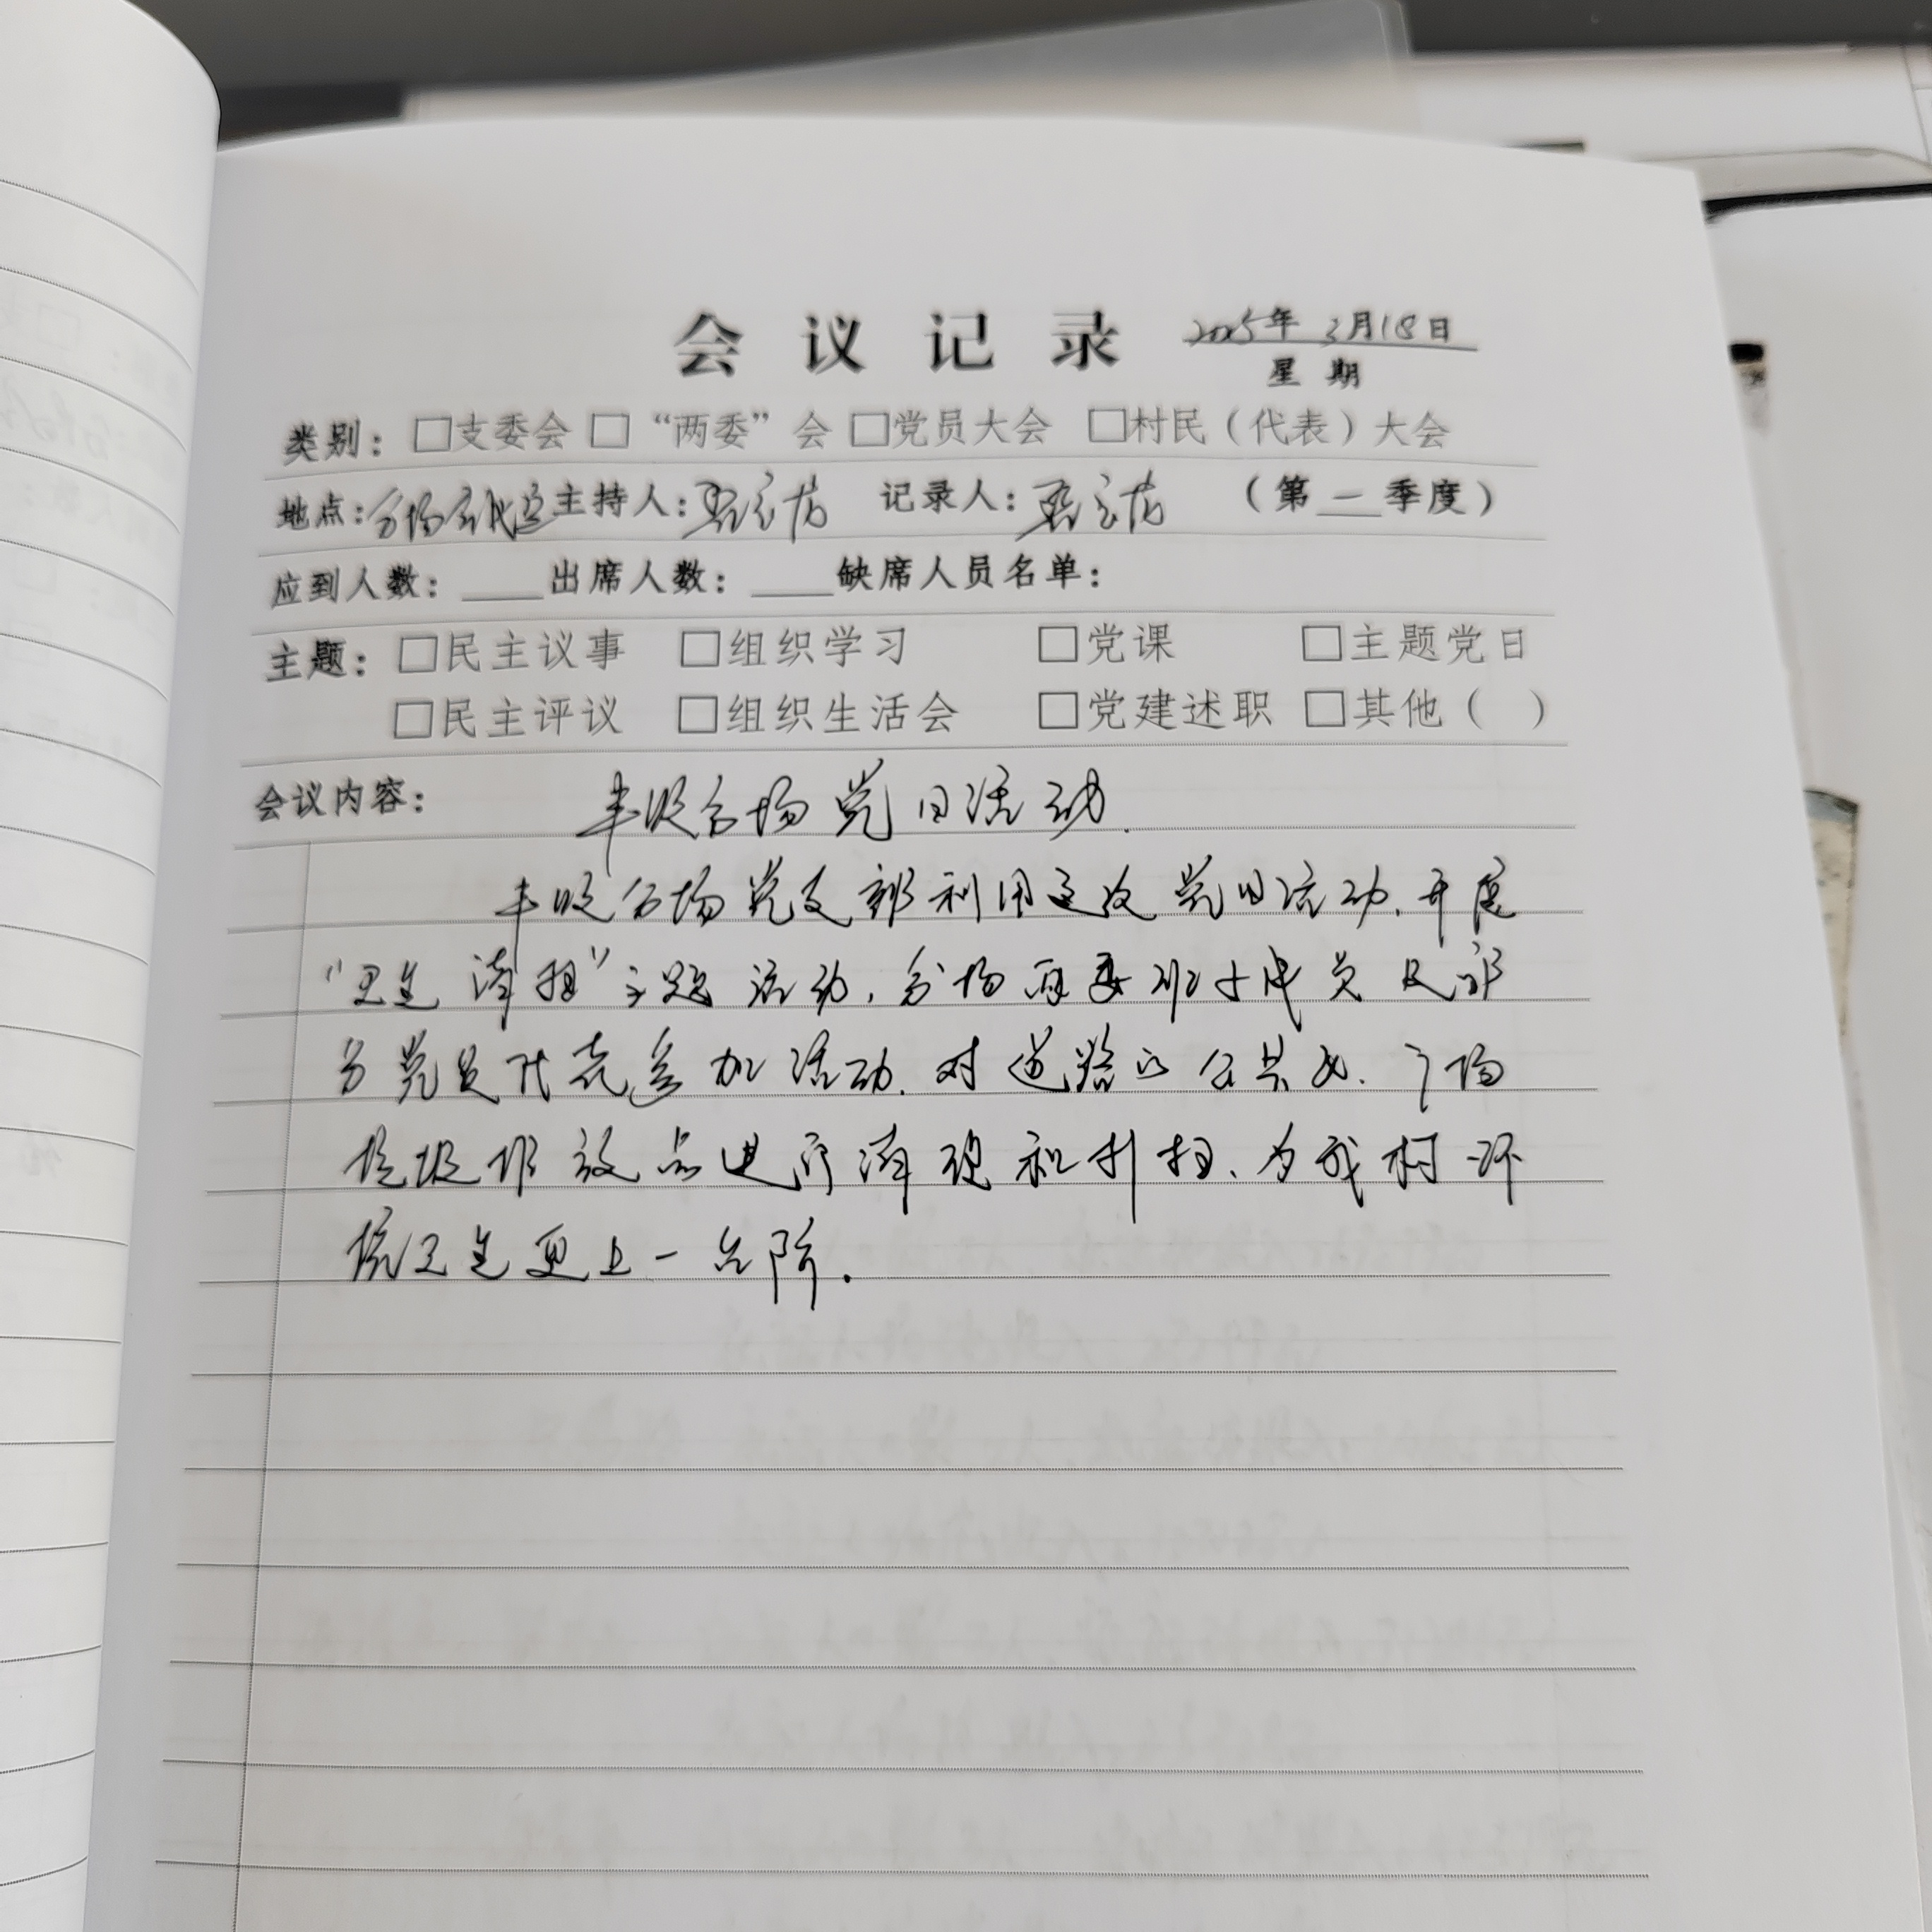 会议记录 2025年3月18日
星期
类别：□支委会 □“两委”会 □党员大会 □村民（代表）大会
地点：分场会议室 主持人： 记录人： （第一季度）
应到人数：____出席人数：____缺席人员名单：
主题：□民主议事 □组织学习 □党课 □主题党日
□民主评议 □组织生活会 □党建述职 □其他（ ）
会议内容： 丰收分场党日活动.
丰收分场党支部利用这次党日活动.开展
“卫生清扫”主题活动,分场两委班子成员及部
分党员代表参加活动.对道路的公共区.广场
垃圾堆放点进行清理和打扫、为我村环
境卫生更上一台阶.